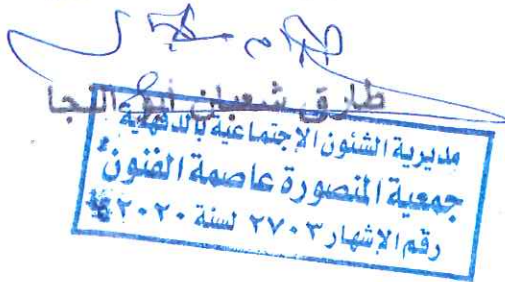 طارق شعبان أبو النجا
مديرية الشئون الاجتماعية بالدقهلية
جمعية المنصورة عاصمة الفنون
رقم الإشهار ٢٧٠٣ لسنة ٢٠٢٠